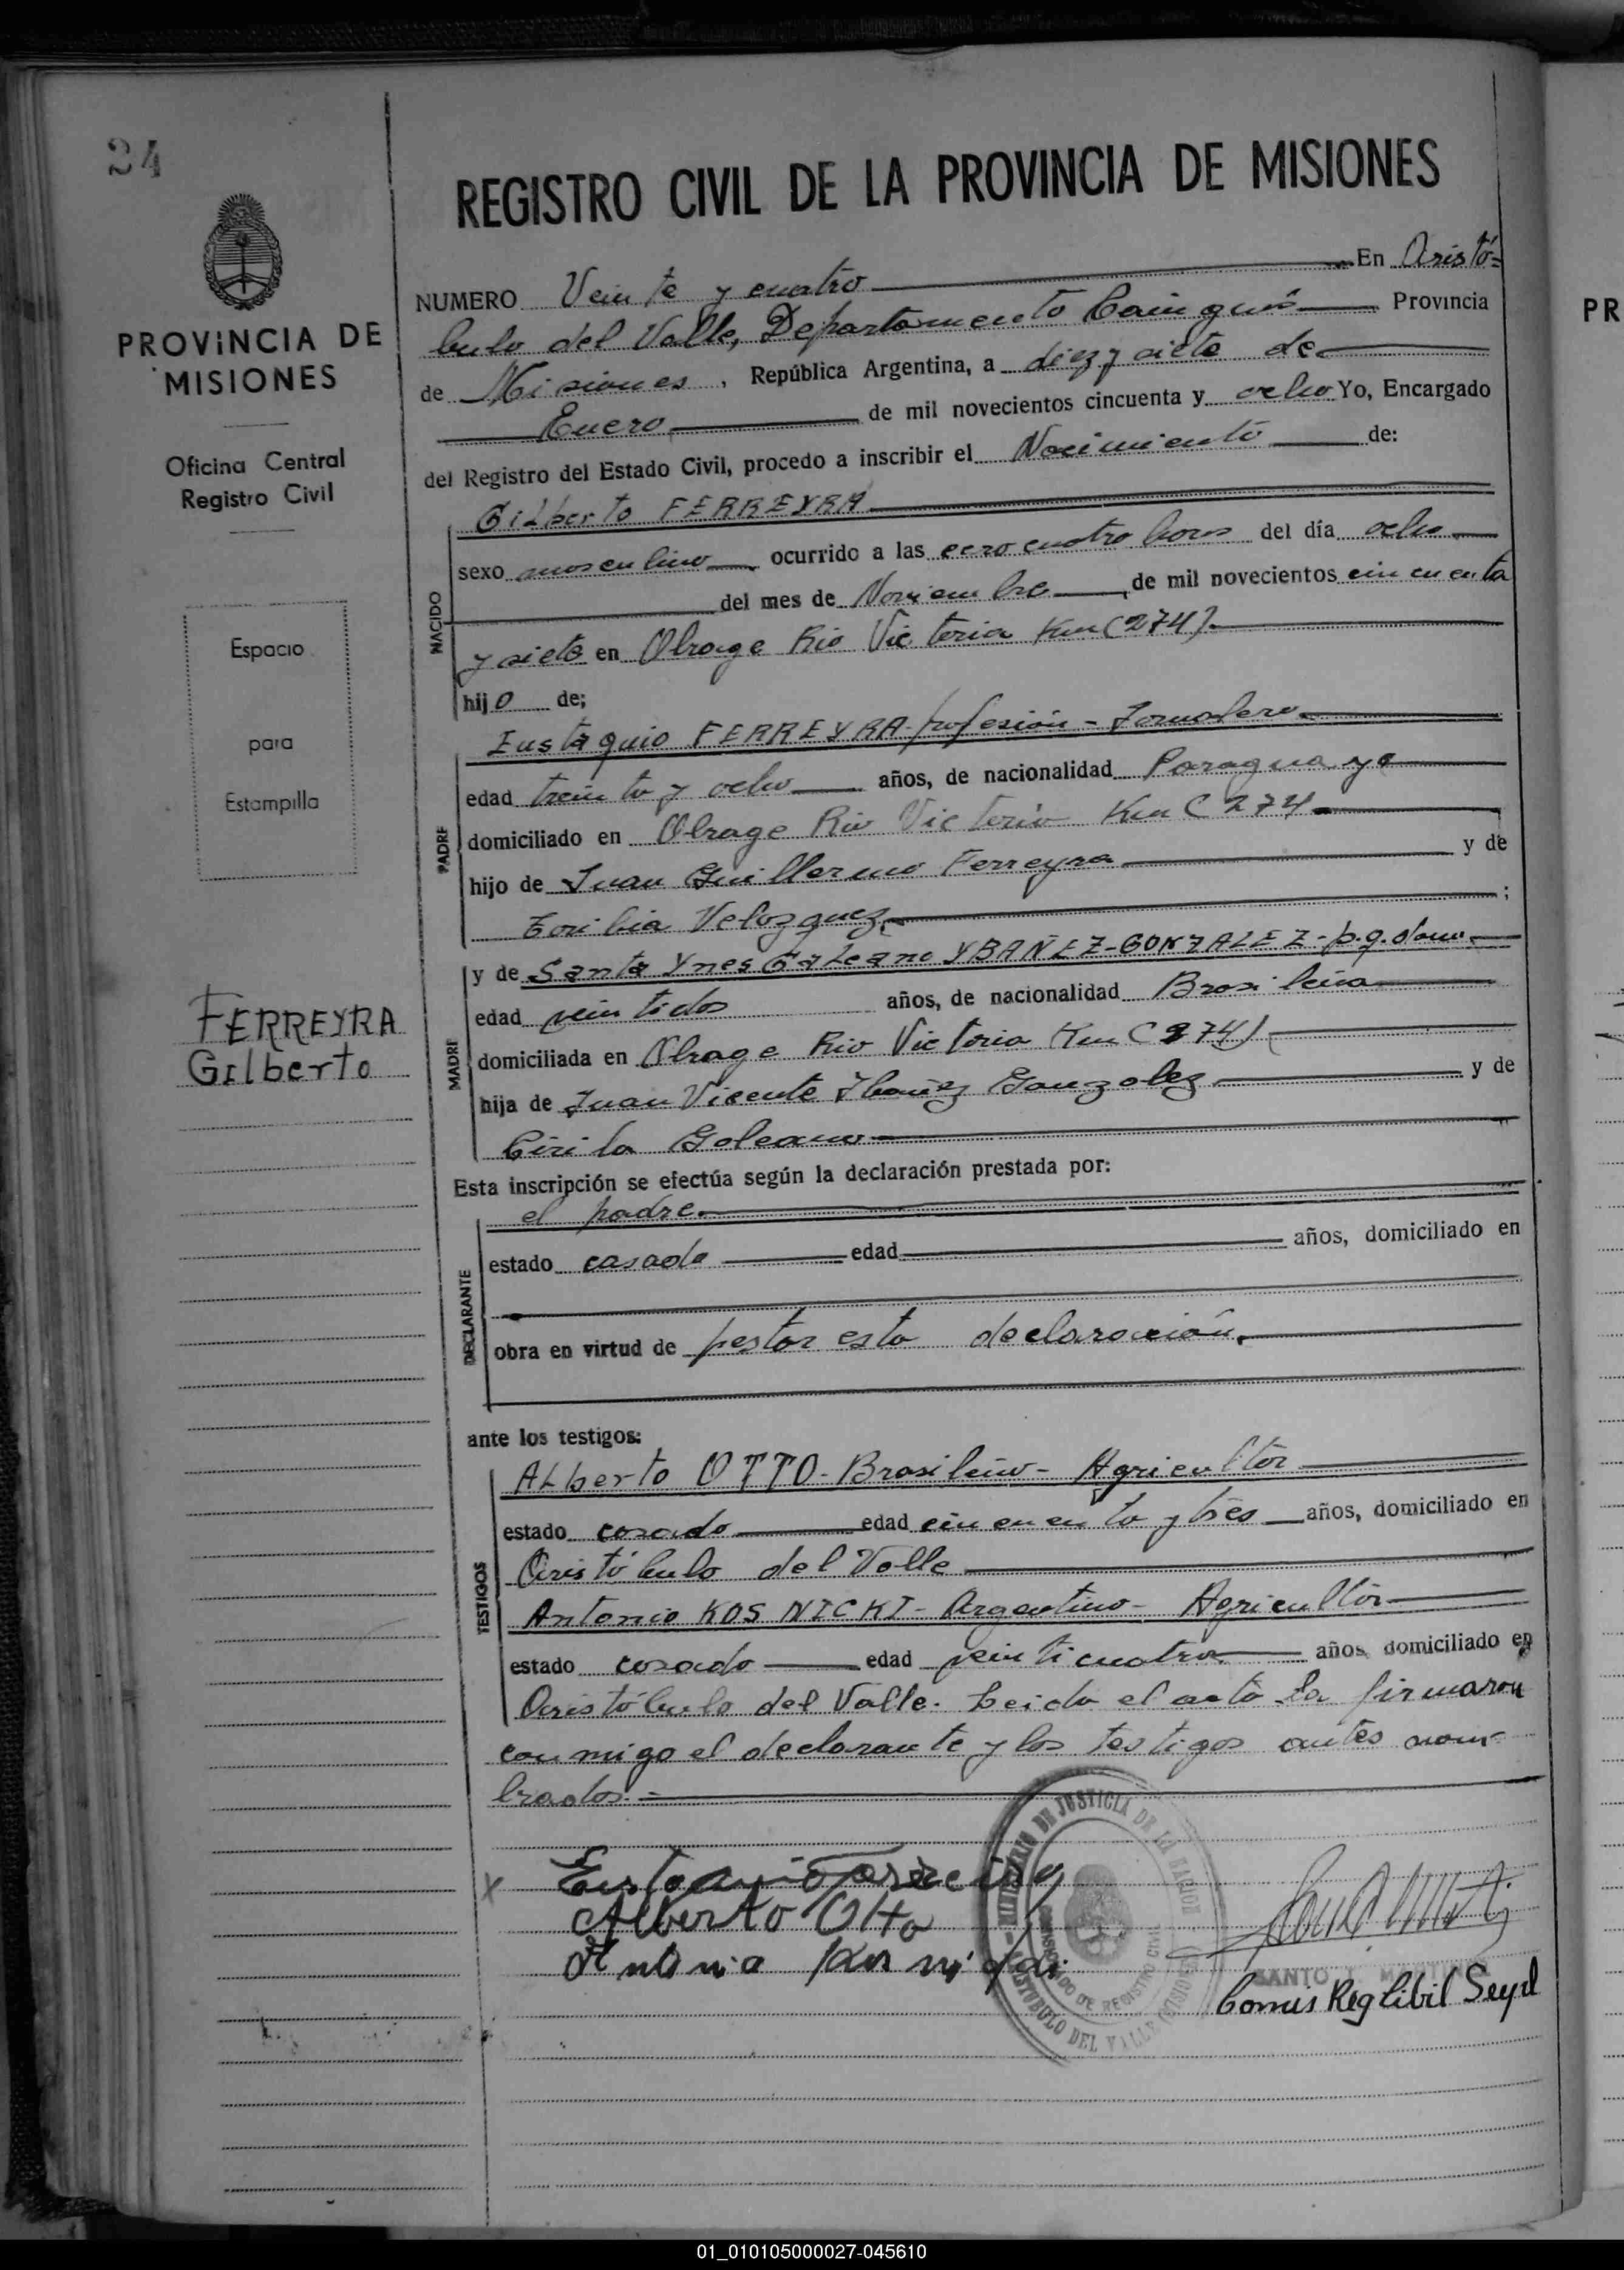 24
PROVINCIA DE
MISIONES
Oficina Central
Registro Civil
Espacio
para
Estampilla
FERREYRA
Gilberto
REGISTRO CIVIL DE LA PROVINCIA DE MISIONES
NUMERO Veinte y cuatro En Aristó=
bulo del Valle, Departamento Cainguás Provincia
de Misiones, República Argentina, a diez y siete de
Enero de mil novecientos cincuenta y ocho Yo, Encargado
del Registro del Estado Civil, procedo a inscribir el Nacimiento de:
NACIDO
Gilberto FERREYRA
sexo masculino ocurrido a las cero cuatro horas del día ocho
del mes de Noviembre de mil novecientos cincuenta
y siete en Obrage Rio Victoria Km (274)
hijo de;
PADRE
Eustaquio FERREYRA profesión - Jornalero
edad treinta y ocho años, de nacionalidad Paraguaya
domiciliado en Obrage Rio Victoria Km (274
hijo de Juan Guillermo Ferreyra y de
Toribia Velozquez ;
MADRE
y de Santa Ynes Galeano YBAÑEZ-GONZALEZ - p.q.dom.
edad veintidos años, de nacionalidad Brasileña
domiciliada en Obrage Rio Victoria Km (274)
hija de Juan Vicente Ibañez Gonzalez y de
Cirila Galeano
Esta inscripción se efectúa según la declaración prestada por:
DECLARANTE
el padre.
estado casado edad años, domiciliado en
obra en virtud de pestar esta declaración,
ante los testigos:
TESTIGOS
Alberto OTTO - Brasileño - Agricultor
estado casado edad cincuenta y tres años, domiciliado en
Aristóbulo del Valle
Antonio KOSNICKI - Argentino - Agricultor
estado casado edad veinticuatro años, domiciliado en
Aristóbulo del Valle. Leida el acta la firmaron
conmigo el declarante y los testigos antes nom-
brados. =
x Eustaquio Ferreira
Alberto Otto
Antonio
MINISTERIO DE JUSTICIA DE LA NACION
DE REGISTRO CIVIL
ARISTOBULO DEL VALLE (MISIONES)
SANTO
Comis Reg Cibil Seyd
PR
01_010105000027-045610